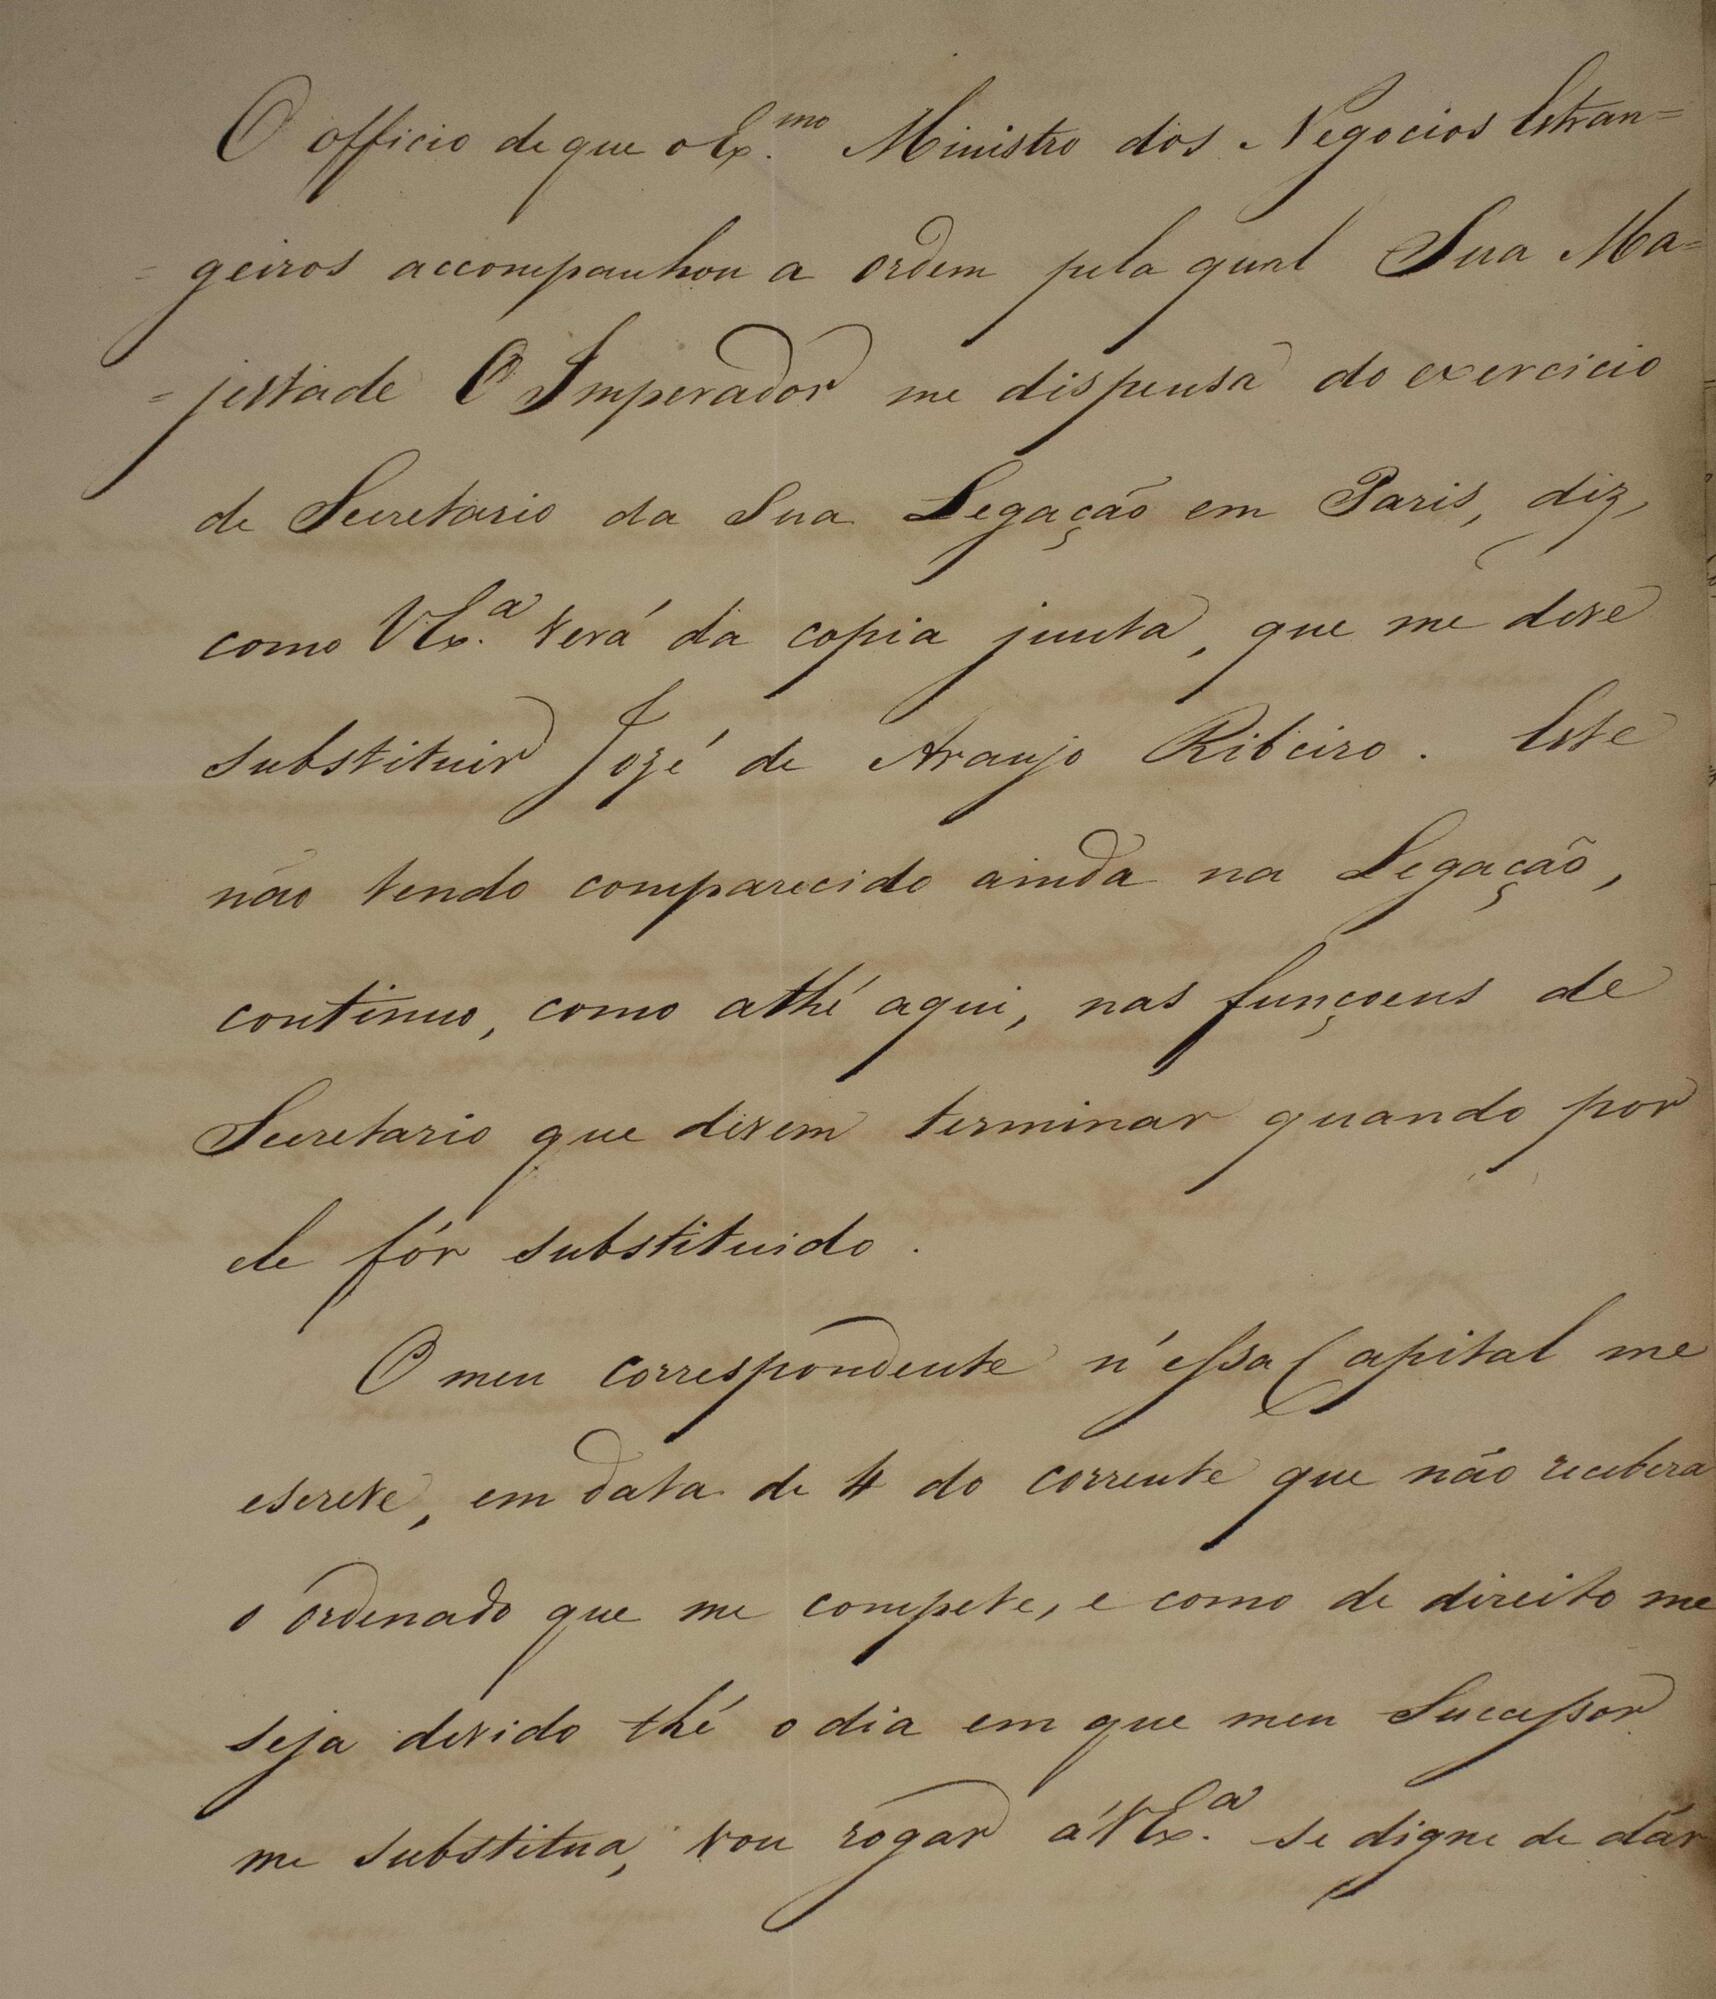 O officio de que o Ex.mo Ministro dos Negocios Estran=
=geiros accompanhou a ordem pela qual Sua Ma=
=jestade O Imperador me dispensa do exercicio
de Secretario da Sua Legação em Paris, diz,
como VEx.a verá da copia junta, que me deve
substituir Jozé de Araujo Ribeiro. Este
não tendo comparecido ainda na Legação,
continuo, como athé aqui, nas funçoens de
Secretario que devem terminar quando por
ele fôr substituido.
O meu correspondente n'essa Capital me
escreve, em data de 4 do corrente que não recebera
o ordenado que me compete, e como de direito me
seja devido thé o dia em que meu Successor
me substitua, vou rogar á VEx.a se digne de dár